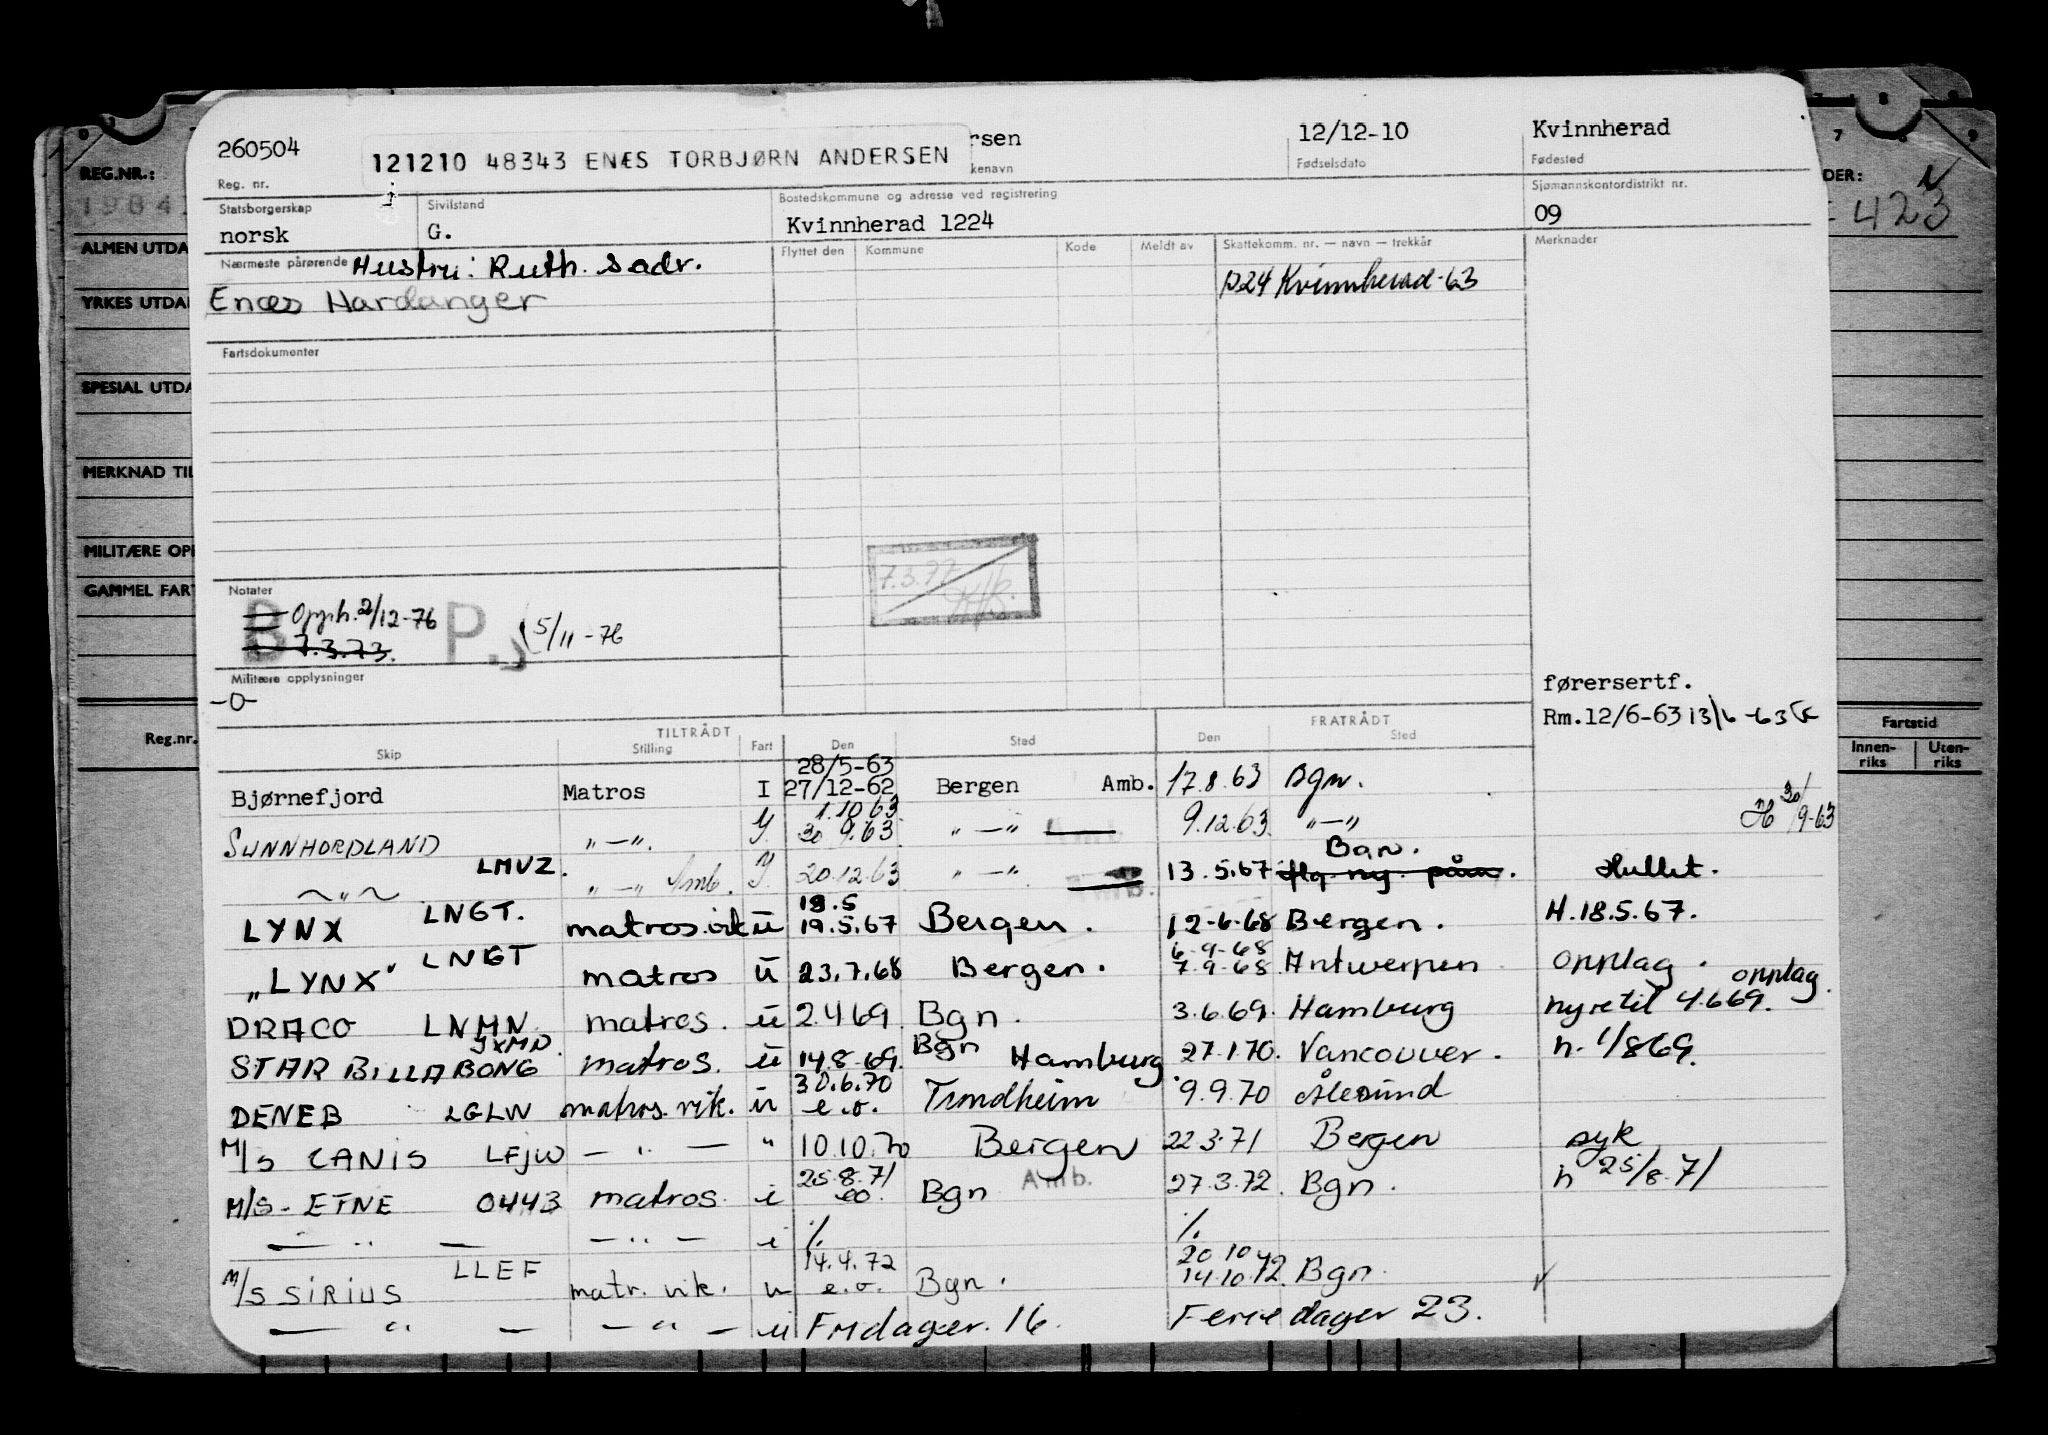 260504
121210 48343 ENÆS TORBJØRN ANDERSEN
rsen
12/12-10
Kvinnherad
Reg. nr.
kenavn
Fødselsdato
Fødested
REG.NR.:
1984
DER:
423
Statsborgerskap
norsk
Sivilstand
G.
Bostedskommune og adresse ved registrering
Kvinnherad 1224
Sjømannskontordistrikt nr.
09
ALMEN UTDA
Nærmeste pårørende Hustru: Ruth. s adr.
Enæs Hardanger
Flyttet den Kommune Kode Meldt av Skattekomm. nr. — navn — trekkår
1224 Kvinnherad-63
Merknader
YRKES UTDA
Fartsdokumenter
SPESIAL UTDA
MERKNAD TIL
MILITÆRE OPP
GAMMEL FART
7.3.77
Notater
B Opph. 2/12-76 P. 5/11-76
7.3.73.
Militære opplysninger
-0-
førersertf.
Rm.12/6-63 13/6-63
Reg.nr.
Fartstid
Innen-riks Uten-riks
TILTRÅDT FRATRÅDT
Skip Stilling Fart Den Sted Den Sted
28/5-63
Bjørnefjord Matros I 27/12-62 Bergen Amb. 17.8.63 Bgn.
1.10.63
SUNNHORDLAND " — ". 30.9.63 " — " 9.12.63 " — " 30/9-63
Bgn.
" LMVZ. " — " Amb. 20.12.63 " — " 13.5.67 Hullet.
18.5
LYNX LNGT. matros.vik ü 19.5.67 Bergen. 12-6-68 Bergen. H.18.5.67.
6-9-68
"LYNX" LNGT matros ü 23.7.68 Bergen. 7.9-68 Antwerpen opplag. opplag.
DRACO LNMN matros. ü 2.4 69 Bgn. 3.6.69. Hamburg hyretil 4.669.
JXMD.
STAR BILLABONG matros. ü 14.8-69. Bgn Hamburg 27.1.70. Vancouver. h. 1/869.
30.6.70
DENEB LGLW matros. vik. ü e.o. Trondheim 9.9.70 Ålesund
M/S CANIS LFJW — " — " 10.10.70 Bergen 22.3.71 Bergen syk
25.8.71
M/S- ETNE 0443 matros. i eo. Bgn Amb. 27.3.72. Bgn. h 25/8.71
— " — — " — i ./. ./.
14.4.72 20 10
M/S SIRIUS LLEF matr. vik. u e.o. Bgn. 14.10.72. Bgn.
— " — — " — ü Fridager. 16. Ferie dager 23.